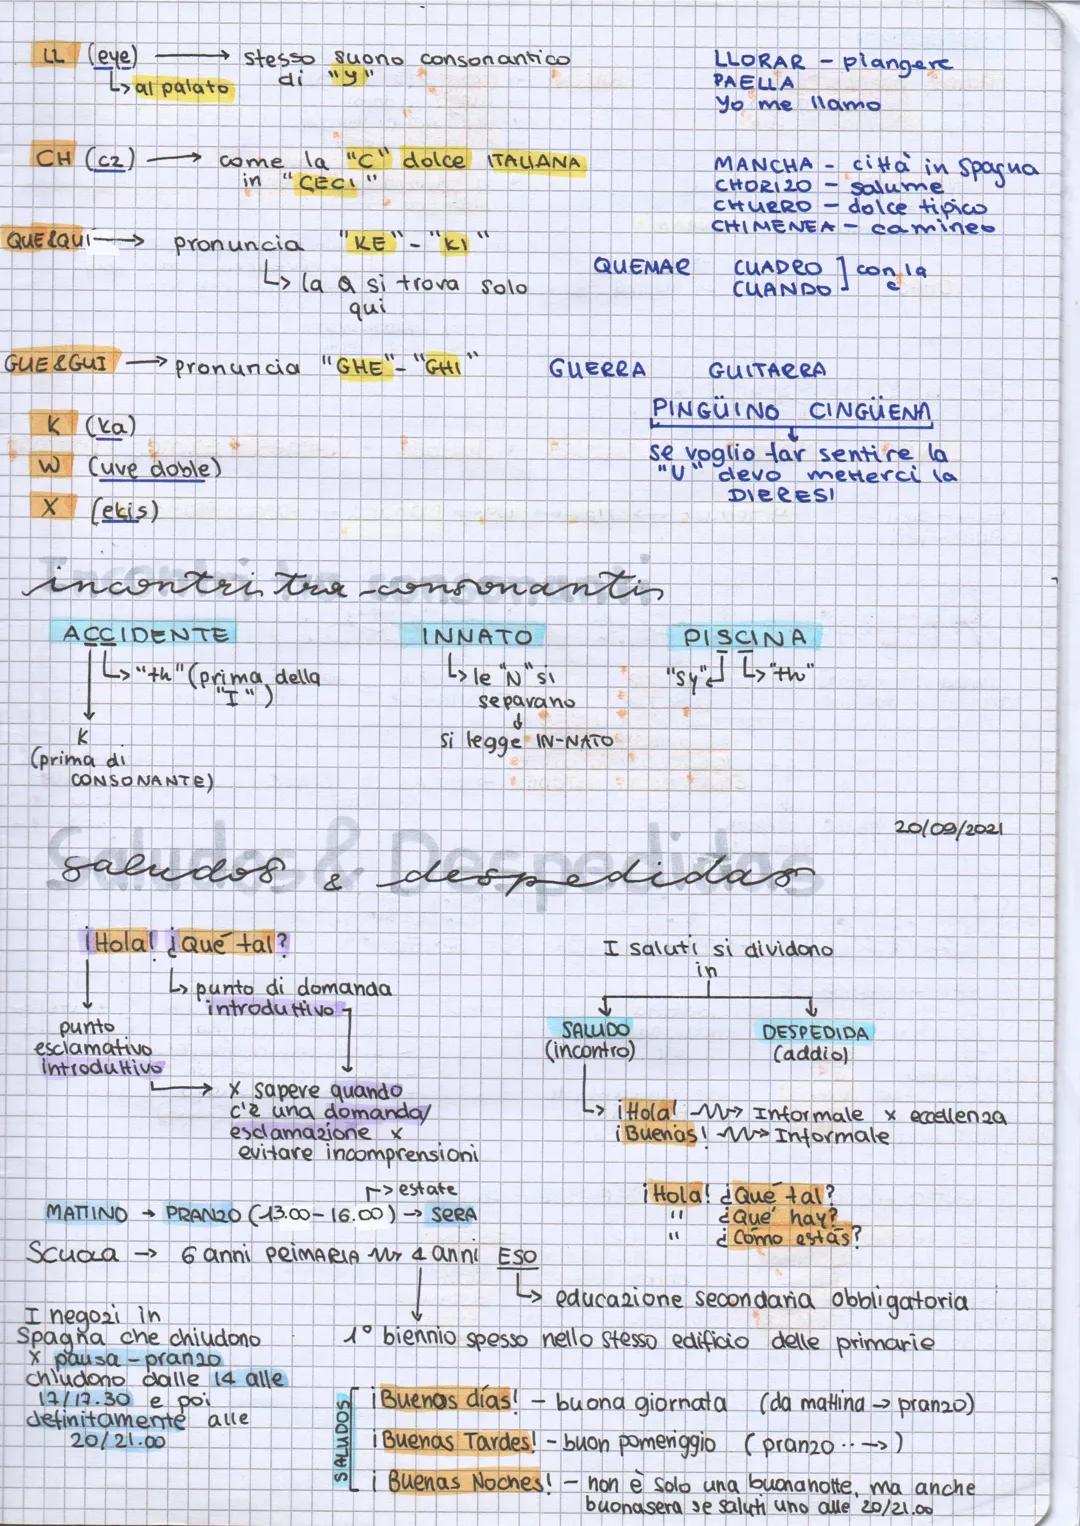 LL (eye) → stesso suono consonantico
di "y"
↳ al palato
LLORAR - piangere
PAELLA
Yo me llamo
CH (cz) → come la "C" dolce ITALIANA
in "CECI"
MANCHA - città in Spagna
CHORIZO - salume
CHURRO - dolce tipico
CHIMENEA - camineo
QUE&QUI → pronuncia "KE" - "KI"
↳ la Q si trova solo
qui
QUEMAR CUADRO ] con la
CUANDO c
GUE&GUI → pronuncia "GHE" - "GHI"
GUERRA GUITARRA
PINGÜINO CINGÜENA
se voglio far sentire la
"U" devo metterci la
DIERESI
K (ka)
W (uve doble)
X (ekis)
incontri tra consonanti
ACCIDENTE
↳ "th" (prima della
"I")
K
(prima di
CONSONANTE)
INNATO
↳ le "N" si
separano
↓
si legge IN-NATO
PISCINA
"sy" ↲ ↳ "th"
20/09/2021
Saludos & Despedidas
saludos & despedidas
¡Hola! ¿Qué tal?
↳ punto di domanda
introduttivo
punto
esclamativo
introduttivo
→ x sapere quando
c'è una domanda/
esclamazione x
evitare incomprensioni
I saluti si dividono
in
SALUDO
(incontro)
DESPEDIDA
(addio)
↳ ¡Hola! → Informale x eccellenza
¡Buenas! → Informale
¡Hola! ¿Qué tal?
" ¿Qué hay?
" ¿Cómo estás?
↱ estate
MATTINO → PRANZO (13.00-16.00) → SERA
Scuola → 6 anni PRIMARIA → 4 anni ESO
↳ educazione secondaria obbligatoria
1° biennio spesso nello stesso edificio delle primarie
I negozi in
Spagna che chiudono
x pausa-pranzo
chiudono dalle 14 alle
17/17.30 e poi
definitamente alle
20/21.00
SALUDOS
¡Buenos días! - buona giornata (da mattina → pranzo)
¡Buenas Tardes! - buon pomeriggio (pranzo ..→)
¡Buenas Noches! - non è solo una buonanotte, ma anche
buonasera se saluti uno alle 20/21.00